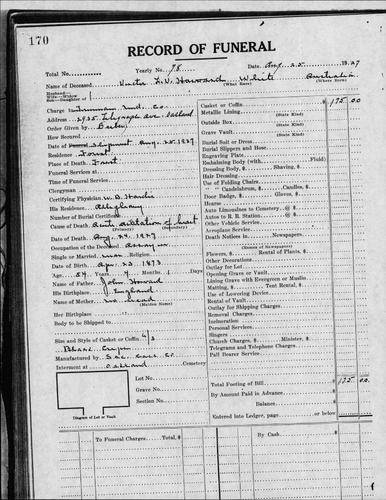 170
RECORD OF FUNERAL
Total No. Yearly No. 78 Date Aug. 25 1927
Name of Deceased Victor L.V. Howard White Australia
Husband
Wife—Widow
Son—Daughter of (What Race) (Where Born)
Charge to Truman Und. Co.
Address 2935 Telegraph Ave. Oakland
Order Given by
How Secured
Date of Shipment Aug. 25. 1927
Residence Forest
Place of Death Forest
Funeral Services at
Time of Funeral Service
Clergyman
Certifying Physician W. B.
His Residence Alleghany
Number of Burial Certificate
Cause of Death Acute dilatation of heart
(Primary) (Secondary)
Date of Death Aug. 24, 1927
Occupation of the Deceased Assayer
Single or Married man Religion
Date of Birth Apr. 23 1873
Age 54 Years 4 Months 1 Days
Name of Father John Howard
His Birthplace England
Name of Mother
(Maiden Name)
Her Birthplace
Body to be Shipped to
Size and Style of Casket or Coffin 6/3
Crepe
Manufactured by Sac. Cask. Co.
Interment at Oakland Cemetery
Lot No.
Grave No.
Section No.
Diagram of Lot or Vault
Casket or Coffin $ 175.00
Metallic Lining
(State Kind)
Outside Box
(State Kind)
Grave Vault
(State Kind)
Burial Suit or Dress
Burial Slippers and Hose
Engraving Plate
Embalming Body (with Fluid)
Dressing Body, $ Shaving, $
Hair Dressing
Use of Folding Chairs
" " Candelabrum, $ Candles, $
Door Badge, $ Gloves, $
Hearse
Auto Limousines to Cemetery @ $
Autos to R. R. Station @ $
Other Vehicle Service
Aeroplane Service
Death Notices in Newspapers
(Names of Newspapers)
Flowers, $ Rental of Plants, $
Other Decorations
Outlay for Lot
Opening Grave or Vault
Lining Grave with Evergreen or Muslin
Matting, $ Tent Rental, $
Use of Lowering Device
Rental of Vault
Outlay for Shipping Charges
Removal Charges
Incineration
Personal Services
Singers
Church Charges, $ Minister, $
Telegrams and Telephone Charges
Pall Bearer Service
Total Footing of Bill $ 175.00
By Amount Paid in Advance
Balance $
Entered into Ledger, page or below
To Funeral Charges Total, $ By Cash $